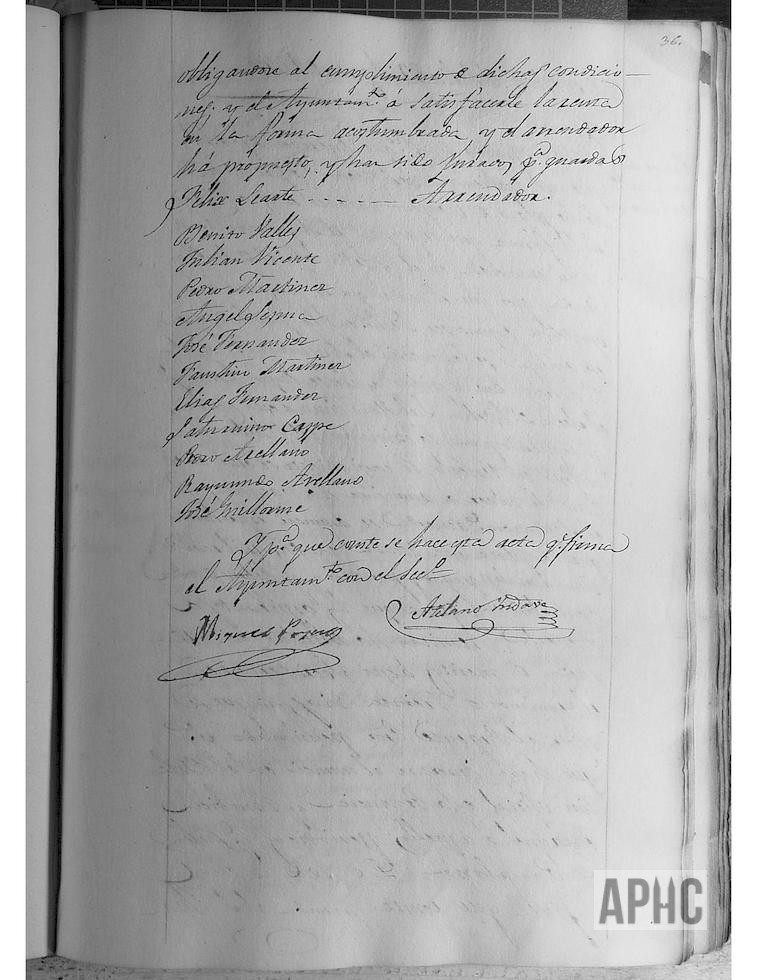 36.
obligandose al cumplimiento de dichas condicio-
nes. y el Ayuntamto á satisfacerle la renta
en la forma acostumbrada y el arrendador
há propuesto, y han sido pa. guardas
Felix Learte - - - - - Arrendador.
Benito Valles
Julian Vicente
Pedro Martinez
Angel Serma
José Fernandez
Faustino Martinez
Elias Fernandez
Saturnino Cappe
Pedro Arellano
Raymundo Arellano
José Guillorme
Y pa. que conste se hace esta acta q. firma
el Ayuntamto. con el Seco.
Miguel
Atilano Yndave
APHC